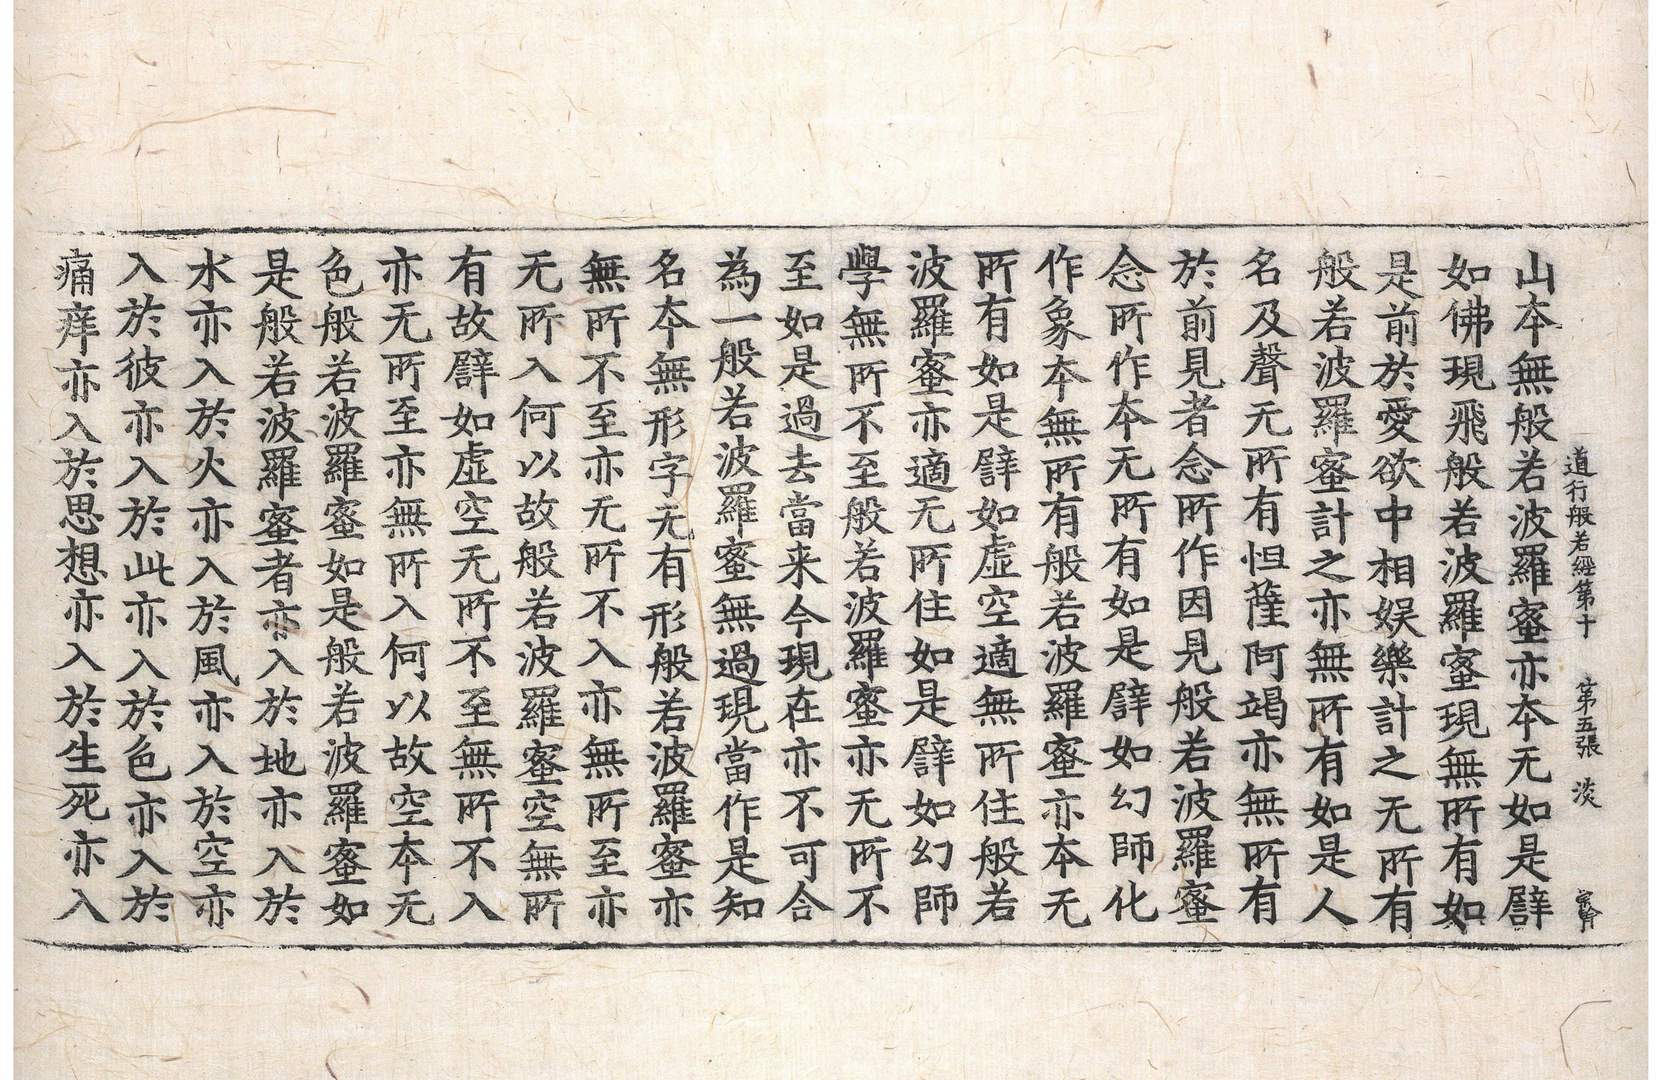 道行般若經第十 第五張 淡
山本無般若波羅蜜亦本无如是譬
如佛現飛般若波羅蜜現無所有如
是前於愛欲中相娛樂計之无所有
般若波羅蜜計之亦無所有如是人
名及聲无所有怛薩阿竭亦無所有
於前見者念所作因見般若波羅蜜
念所作本无所有如是譬如幻師化
作象本無所有般若波羅蜜亦本无
所有如是譬如虛空適無所住般若
波羅蜜亦適无所住如是譬如幻師
學無所不至般若波羅蜜亦无所不
至如是過去當来今現在亦不可合
為一般若波羅蜜無過現當作是知
名本無形字无有形般若波羅蜜亦
無所不至亦无所不入亦無所至亦
无所入何以故般若波羅蜜空無所
有故譬如虛空无所不至無所不入
亦无所至亦無所入何以故空本无
色般若波羅蜜如是般若波羅蜜如
是般若波羅蜜者亦入於地亦入於
水亦入於火亦入於風亦入於空亦
入於彼亦入於此亦入於色亦入於
痛痒亦入於思想亦入於生死亦入